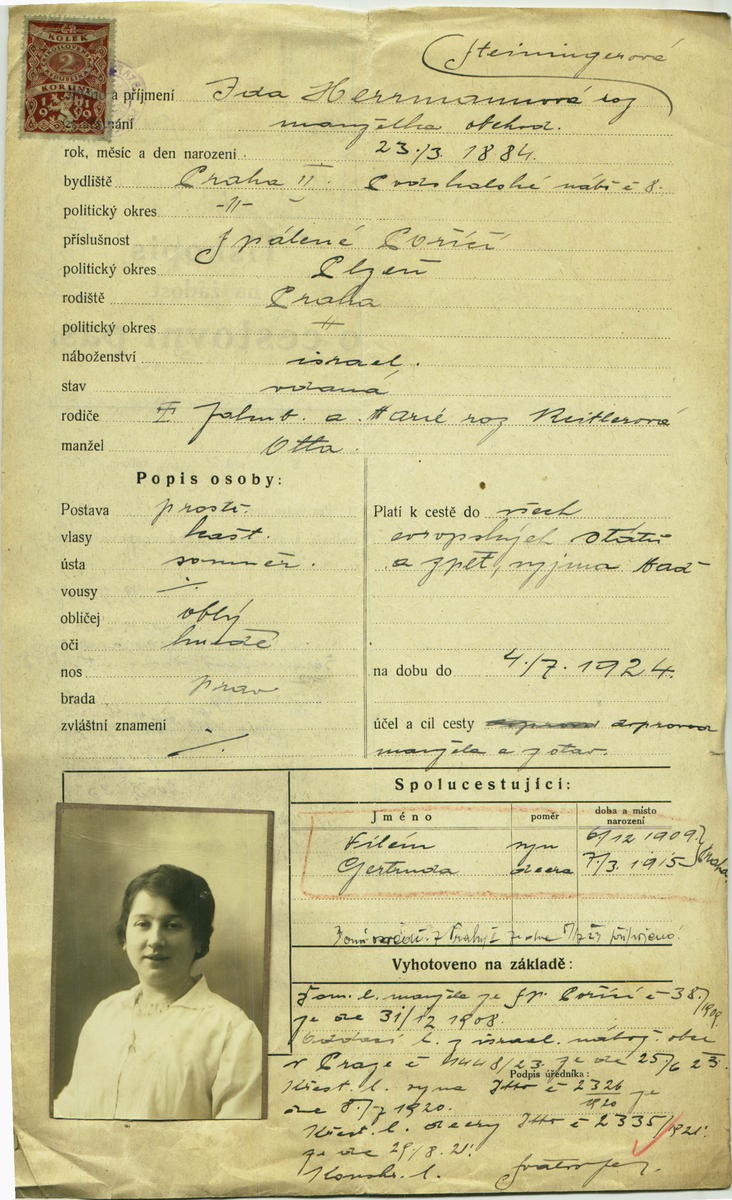 Steiningerová
KOLEK
2
KORUNY
a příjmení Ida Herrmannová roz
manželka obchod.
rok, měsíc a den narození 23./3. 1884.
bydliště Praha II. Podskalské nábř č 8.
politický okres -II-
příslušnost Spálené Poříčí
politický okres Plzeň
rodiště Praha
politický okres
náboženství israel.
stav vdaná
rodiče a Marie roz Reitlerová
manžel Otto
Popis osoby:
Postava prostř.
vlasy kašt.
ústa souměr.
vousy ·/.
obličej oblý
oči hnědé
nos
brada prav
zvláštní znamení ·/.
Platí k cestě do všech
evropských států
a zpět, vyjma Maď
na dobu do 4./7. 1924.
účel a cíl cesty doprovod
manžela a zotav.
Spolucestující:
Jméno poměr doba a místo narození
Vilém syn 6/12 1909 Praha
Gertruda dcera 7./3. 1915
Vyhotoveno na základě:
Dom. l. manžela je Sp. Poříčí č 38/1909
ze dne 31/12 1908.
Oddací l. z israel. nábož. obce
v Praze č 1448/23 ze dne 25/6 23.
Podpis úředníka:
Křest. l. syna č 2326/1920 ze
dne 8./7 1920.
Křest. l. dcery č 2335/1921
ze dne 29/8. 21.
Konskr. l.